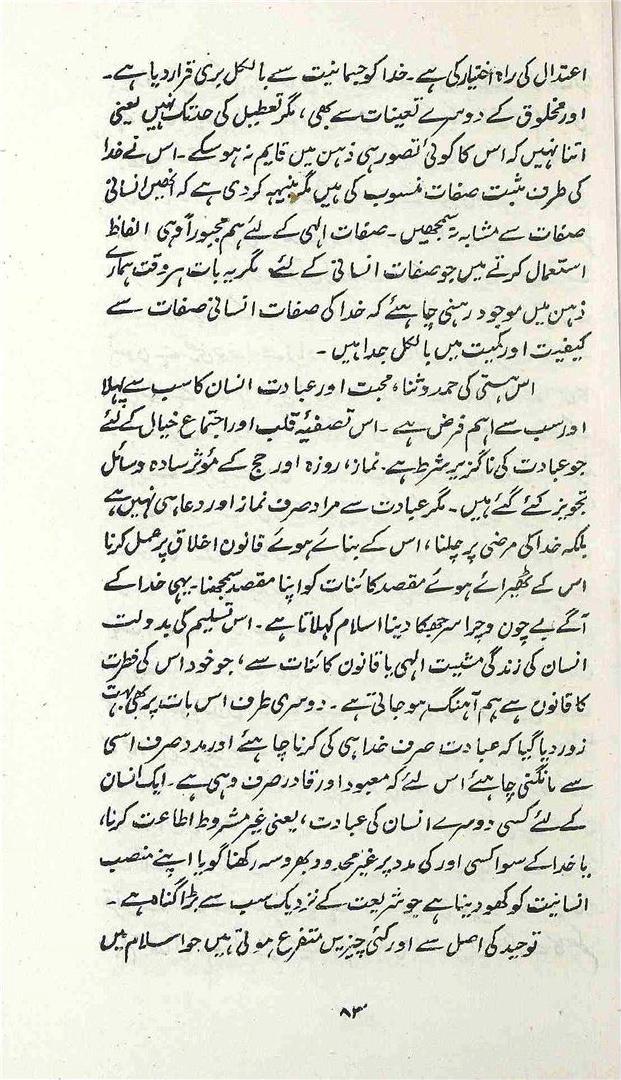 اعتدال کی راہ اختیار کی ہے۔ خدا کو جسمانیت سے بالکل بری قرار دیا ہے۔
اور مخلوق کے دوسرے تعینات سے بھی، مگر تعطیل کی حد تک نہیں یعنی
اتنا نہیں کہ اس کا کوئی تصور ہی ذہن میں قایم نہ ہو سکے۔ اس نے خدا
کی طرف مثبت صفات منسوب کی ہیں مگر تنبیہہ کر دی ہے کہ انھیں انسانی
صفات سے مشابہ نہ سمجھیں۔ صفات الٰہی کے لئے ہم مجبوراً وہی الفاظ
استعمال کرتے ہیں جو صفات انسانی کے لئے مگر یہ بات ہر وقت ہمارے
ذہن میں موجود رہنی چاہئے کہ خدا کی صفات انسانی صفات سے
کیفیت اور کمیت میں بالکل جدا ہیں۔
اس ہستی کی حمد و ثنا، محبت اور عبادت انسان کا سب سے پہلا
اور سب سے اہم فرض ہے۔ اس تصفیۂ قلب اور اجتماع خیال کے لئے
جو عبادت کی ناگزیر شرط ہے۔ نماز، روزہ اور حج کے مؤثر سادہ وسائل
تجویز کئے گئے ہیں۔ مگر عبادت سے مراد صرف نماز اور دعا ہی نہیں ہے
بلکہ خدا کی مرضی پر چلنا، اس کے بنائے ہوئے قانون اخلاق پر عمل کرنا
اس کے ٹھیرائے ہوئے مقصد کائنات کو اپنا مقصد سمجھنا۔ یہی خدا کے
آگے بے چون و چرا سر جھکا دینا اسلام کہلاتا ہے۔ اس تسلیم کی بدولت
انسان کی زندگی مشیت الٰہی یا قانون کائنات سے، جو خود اس کی فطرت
کا قانون ہے ہم آہنگ ہو جاتی ہے۔ دوسری طرف اس بات پر بھی بہت
زور دیا گیا کہ عبادت صرف خدا ہی کی کرنا چاہئے اور مدد صرف اسی
سے مانگنی چاہئے اس لئے کہ معبود اور قادر صرف وہی ہے۔ ایک انسان
کے لئے کسی دوسرے انسان کی عبادت، یعنی غیر مشروط اطاعت کرنا،
یا خدا کے سوا کسی اور کی مدد پر غیر محدود بھروسہ رکھنا گویا اپنے منصب
انسانیت کو کھو دینا ہے جو شریعت کے نزدیک سب سے بڑا گناہ ہے۔
توحید کی اصل سے اور کئی چیزیں متفرع ہوتی ہیں جو اسلام میں
۸۳